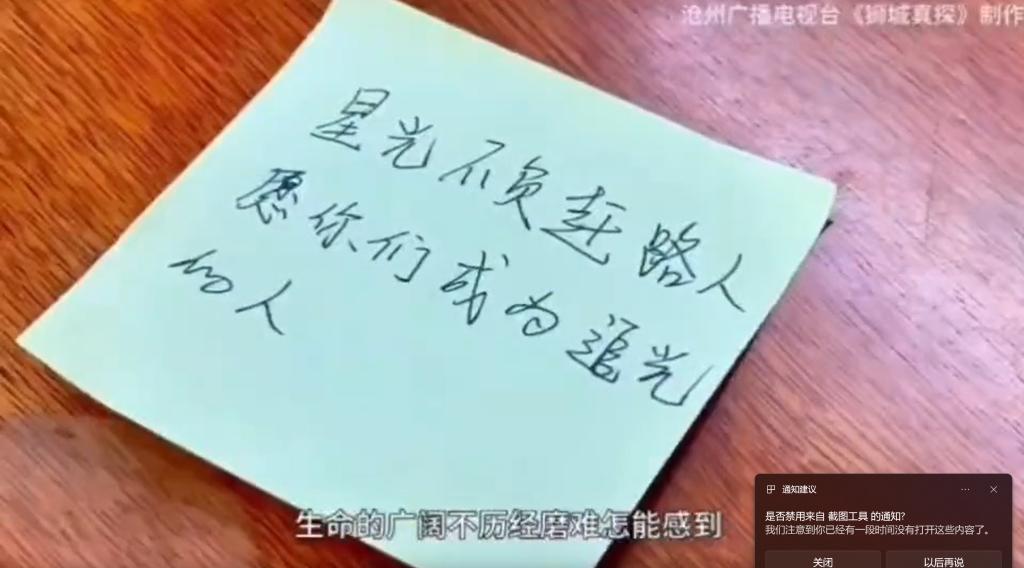 沧州广播电视台《狮城真探》制作
星光不负赶路人
愿你们成为追光
的人
生命的广阔不历经磨难怎能感到
通知建议
是否禁用来自 截图工具 的通知?
我们注意到你已经有一段时间没有打开这些内容了。
关闭
以后再说